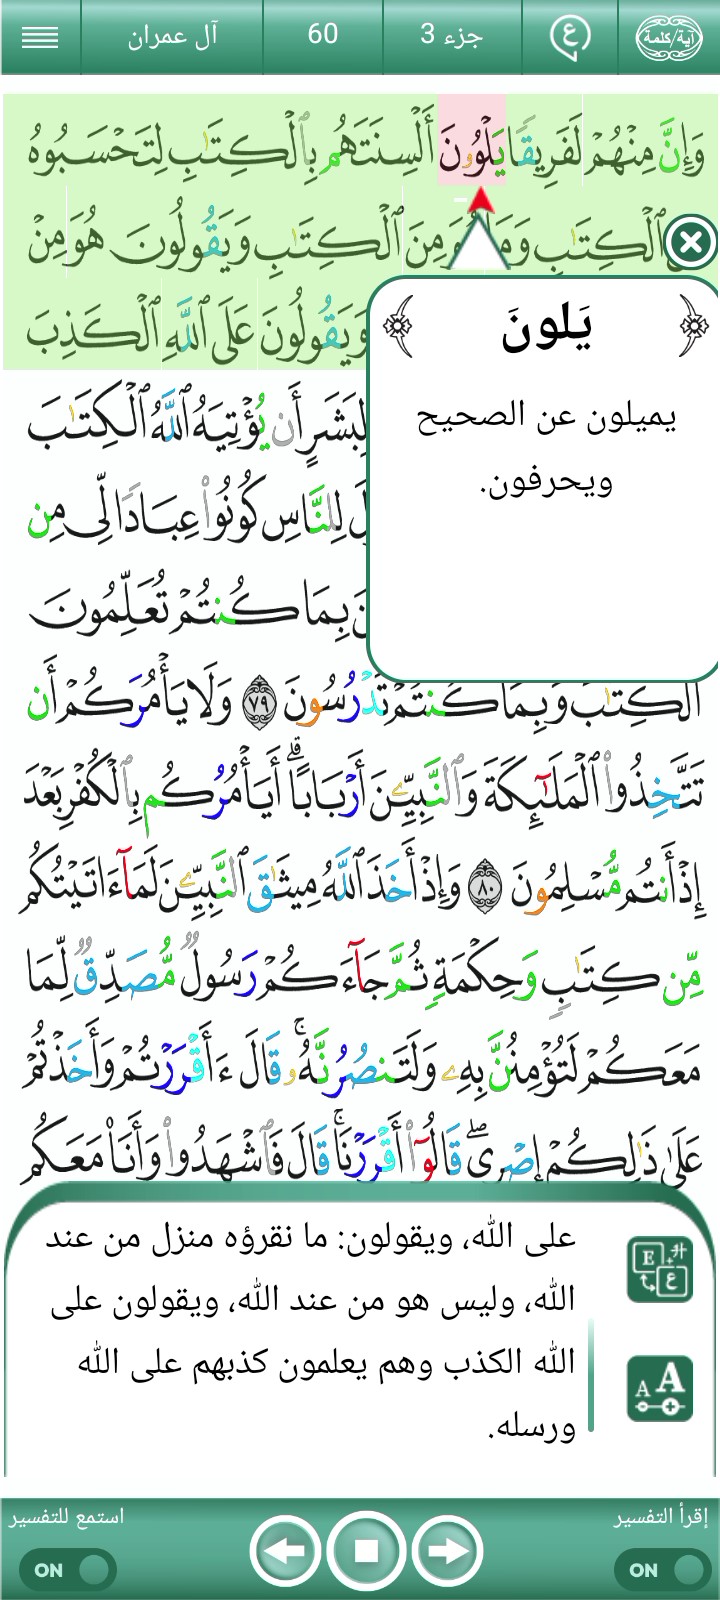 آية/كلمة
ع
جزء 3
60
آل عمران
وَإِنَّ مِنْهُمْ لَفَرِيقًا يَلْوُۥنَ أَلْسِنَتَهُم بِٱلْكِتَٰبِ لِتَحْسَبُوهُ
ٱلْكِتَٰبِ وَمَا هُوَ مِنَ ٱلْكِتَٰبِ وَيَقُولُونَ هُوَ مِنْ
وَيَقُولُونَ عَلَى ٱللَّهِ ٱلْكَذِبَ
يَلونَ
يميلون عن الصحيح
ويحرفون.
لِبَشَرٍ أَن يُؤْتِيَهُ ٱللَّهُ ٱلْكِتَٰبَ
لِلنَّاسِ كُونُوا۟ عِبَادًا لِّى مِن
بِمَا كُنتُمْ تُعَلِّمُونَ
ٱلْكِتَٰبَ وَبِمَا كُنتُمْ تَدْرُسُونَ ٧٩ وَلَا يَأْمُرَكُمْ أَن
تَتَّخِذُوا۟ ٱلْمَلَٰٓئِكَةَ وَٱلنَّبِيِّۦنَ أَرْبَابًا ۗ أَيَأْمُرُكُم بِٱلْكُفْرِ بَعْدَ
إِذْ أَنتُم مُّسْلِمُونَ ٨٠ وَإِذْ أَخَذَ ٱللَّهُ مِيثَٰقَ ٱلنَّبِيِّۦنَ لَمَآ ءَاتَيْتُكُم
مِّن كِتَٰبٍ وَحِكْمَةٍ ثُمَّ جَآءَكُمْ رَسُولٌ مُّصَدِّقٌ لِّمَا
مَعَكُمْ لَتُؤْمِنُنَّ بِهِۦ وَلَتَنصُرُنَّهُۥ ۚ قَالَ ءَأَقْرَرْتُمْ وَأَخَذْتُمْ
عَلَىٰ ذَٰلِكُمْ إِصْرِى ۖ قَالُوٓا۟ أَقْرَرْنَا ۚ قَالَ فَٱشْهَدُوا۟ وَأَنَا۠ مَعَكُم
على الله، ويقولون: ما نقرؤه منزل من عند
الله، وليس هو من عند الله، ويقولون على
الله الكذب وهم يعلمون كذبهم على الله
ورسله.
إقرأ التفسير
استمع للتفسير
ON
ON